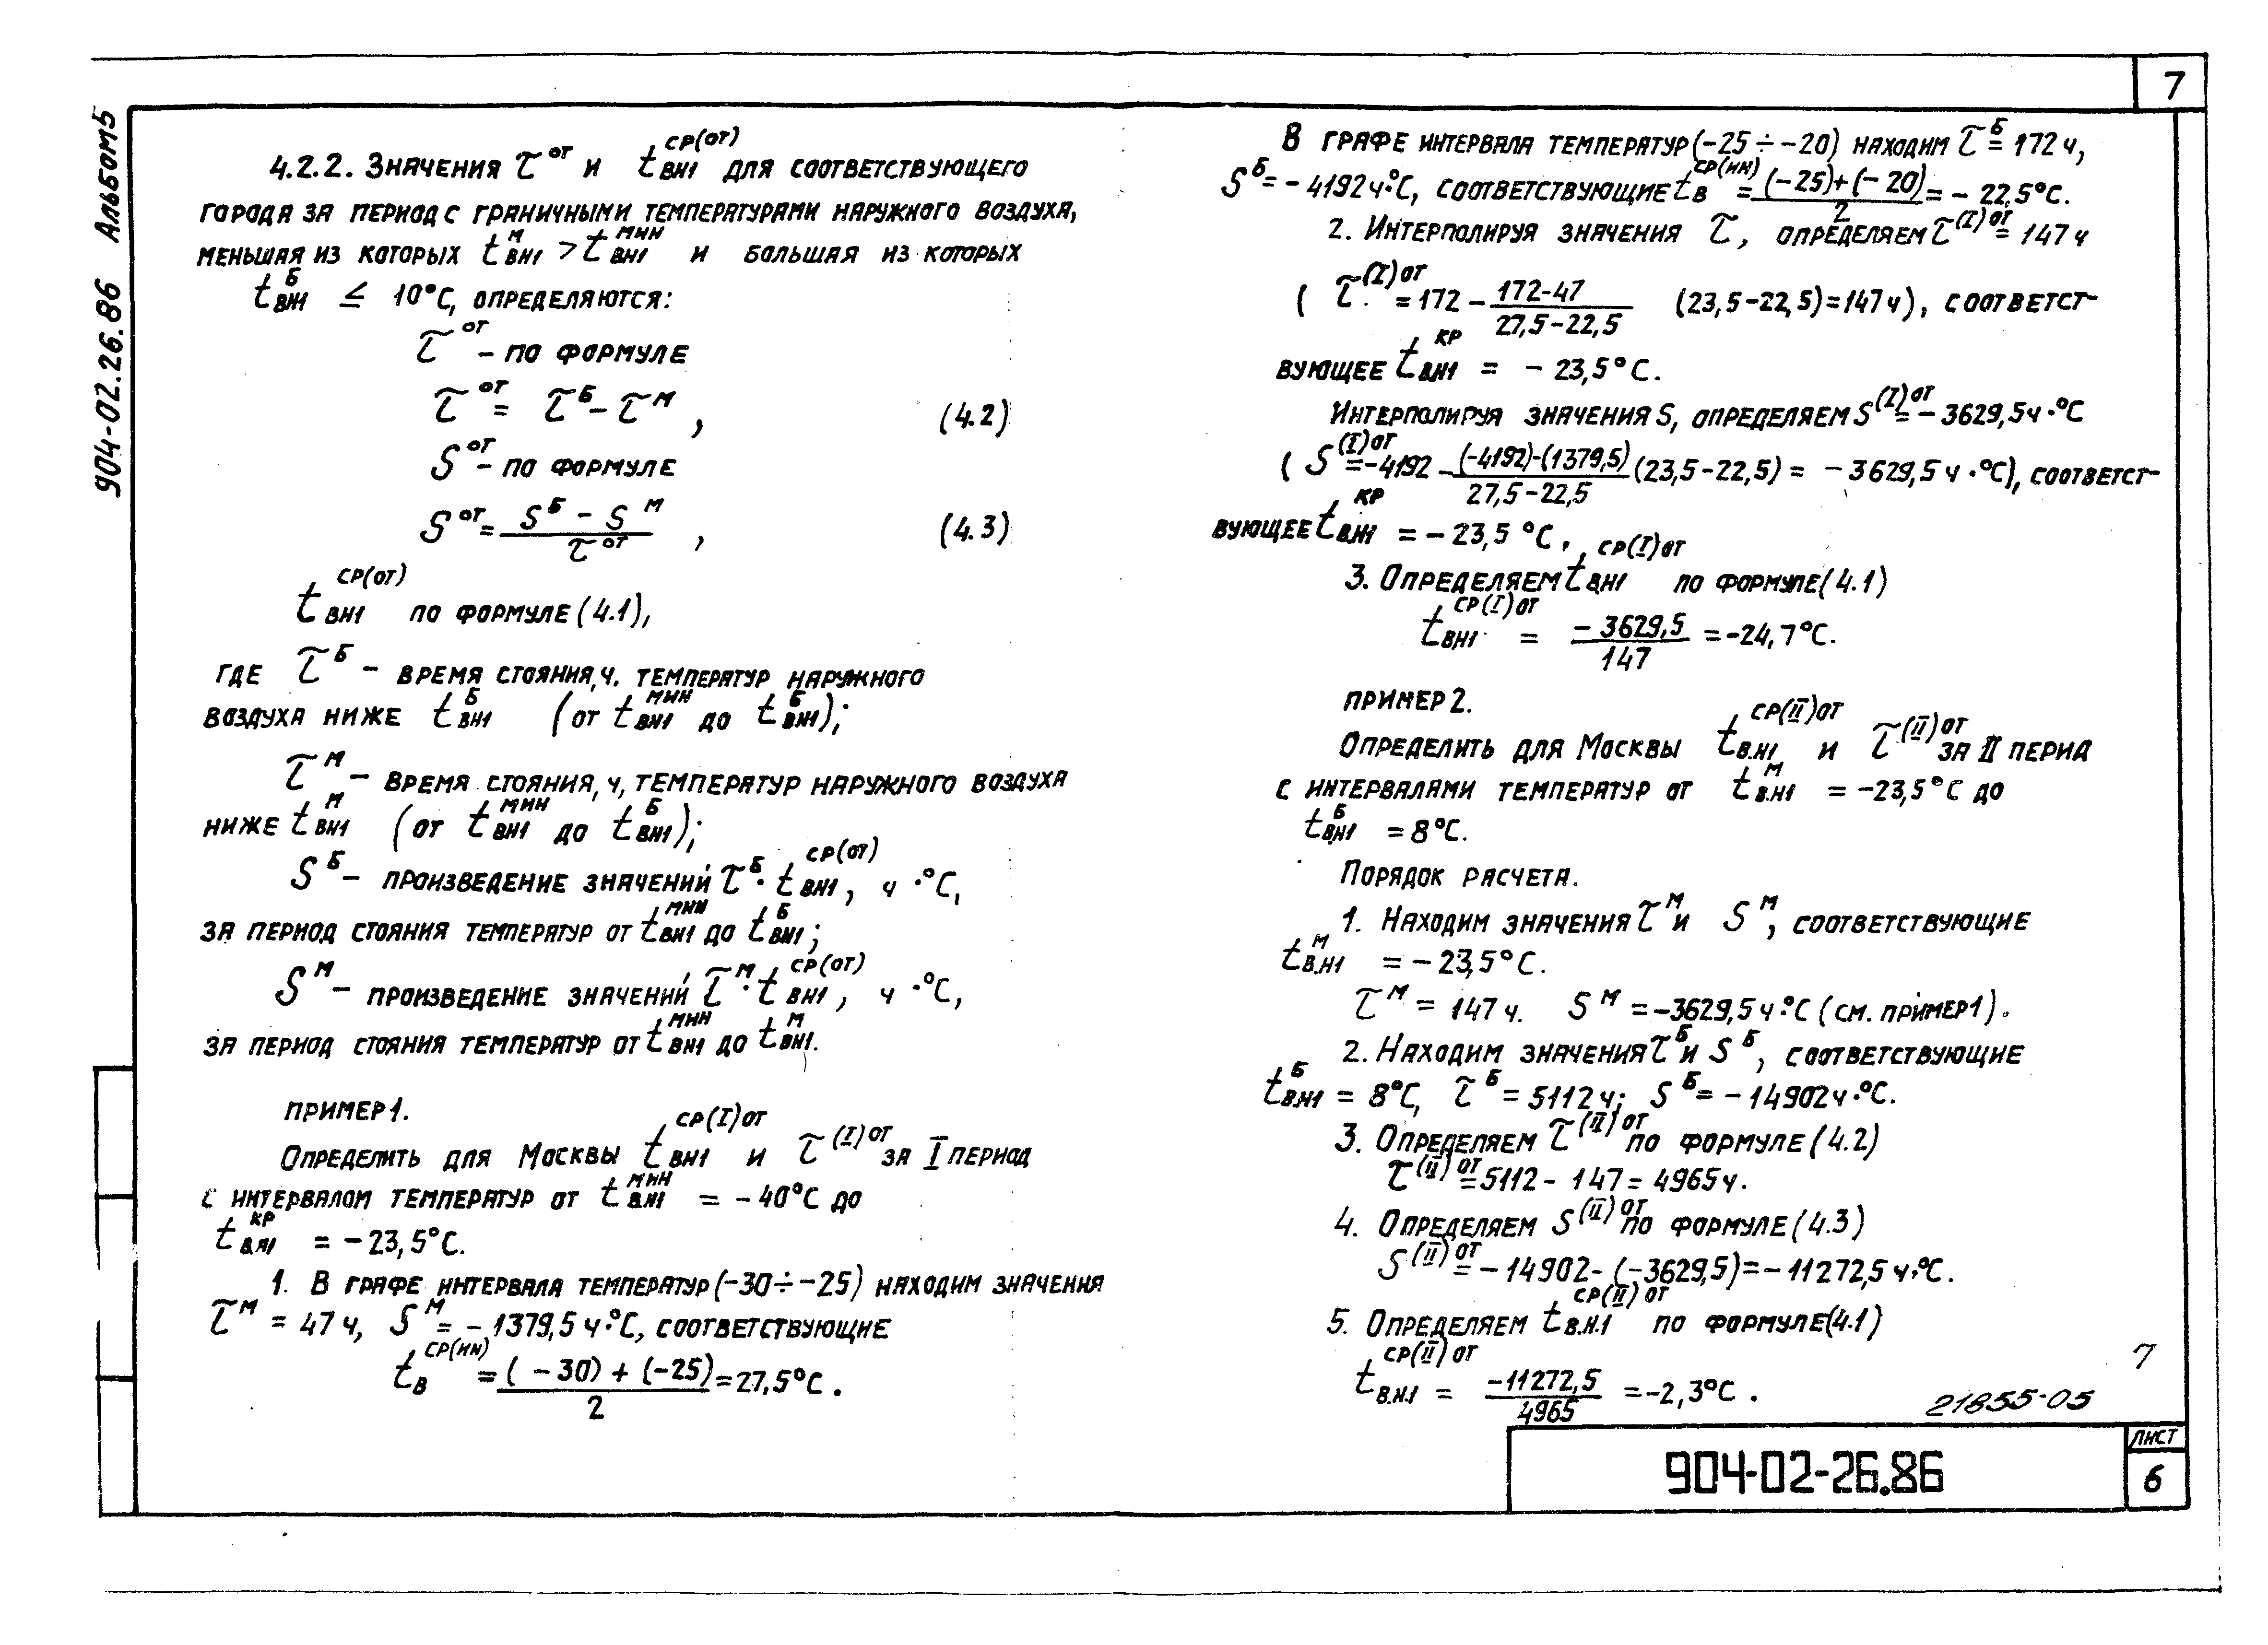 7
904-02.26.86 Альбом5
4.2.2. Значения τ^от и t_вн1^ср(от) для соответствующего
города за период с граничными температурами наружного воздуха,
меньшая из которых t_вн1^м > t_вн1^мин и большая из которых
t_вн1^б ≤ 10°С, определяются:
τ^от - по формуле
τ^от = τ^б - τ^м , (4.2)
S^от - по формуле
S^от = (S^б - S^м) / τ^от , (4.3)
t_вн1^ср(от) по формуле (4.1),
где τ^б - время стояния, ч. температур наружного
воздуха ниже t_вн1^б (от t_вн1^мин до t_вн1^б);
τ^м - время стояния, ч, температур наружного воздуха
ниже t_вн1^м (от t_вн1^мин до t_вн1^б);
S^б - произведение значений τ^б · t_вн1^ср(от), ч·°С,
за период стояния температур от t_вн1^мин до t_вн1^б;
S^м - произведение значений τ^м · t_вн1^ср(от), ч·°С,
за период стояния температур от t_вн1^мин до t_вн1^м.
Пример 1.
Определить для Москвы t_вн1^ср(I)от и τ^(I)от за I период
с интервалом температур от t_вн1^мин = -40°С до
t_вн1^кр = -23,5°С.
1. В графе интервала температур (-30 ÷ -25) находим значения
τ^м = 47 ч, S^м = -1379,5 ч·°С, соответствующие
t_в^ср(ин) = ((-30) + (-25)) / 2 = 27,5°С.
В графе интервала температур (-25 ÷ -20) находим τ^б = 172 ч,
S^б = -4192 ч·°С, соответствующие t_в^ср(ин) = ((-25)+(-20)) / 2 = -22,5°С.
2. Интерполируя значения τ, определяем τ^(I)от = 147 ч
(τ^(I)от = 172 - (172-47) / (27,5-22,5) (23,5-22,5) = 147 ч), соответст-
вующее t_вн1^кр = -23,5°С.
Интерполируя значения S, определяем S^(I)от = -3629,5 ч·°С
(S^(I)от = -4192 - ((-4192)-(1379,5)) / (27,5-22,5) (23,5-22,5) = -3629,5 ч·°С), соответст-
вующее t_вн1^кр = -23,5 °С.
3. Определяем t_в.н1^ср(I)от по формуле (4.1)
t_вн1^ср(I)от = -3629,5 / 147 = -24,7°С.
Пример 2.
Определить для Москвы t_в.н1^ср(II)от и τ^(II)от за II перид
с интервалами температур от t_в.н1^м = -23,5°С до
t_вн1^б = 8°С.
Порядок расчета.
1. Находим значения τ^м и S^м, соответствующие
t_в.н1^м = -23,5°С.
τ^м = 147 ч. S^м = -3629,5 ч·°С (см. пример 1).
2. Находим значения τ^б и S^б, соответствующие
t_вн1^б = 8°С, τ^б = 5112 ч; S^б = -14902 ч·°С.
3. Определяем τ^(II)от по формуле (4.2)
τ^(II)от = 5112 - 147 = 4965 ч.
4. Определяем S^(II)от по формуле (4.3)
S^(II)от = -14902 - (-3629,5) = -11272,5 ч·°С.
5. Определяем t_в.н.1^ср(II)от по формуле (4.1)
t_в.н.1^ср(II)от = -11272,5 / 4965 = -2,3°С.
7
21855-05
904-02-26.86
лист
6